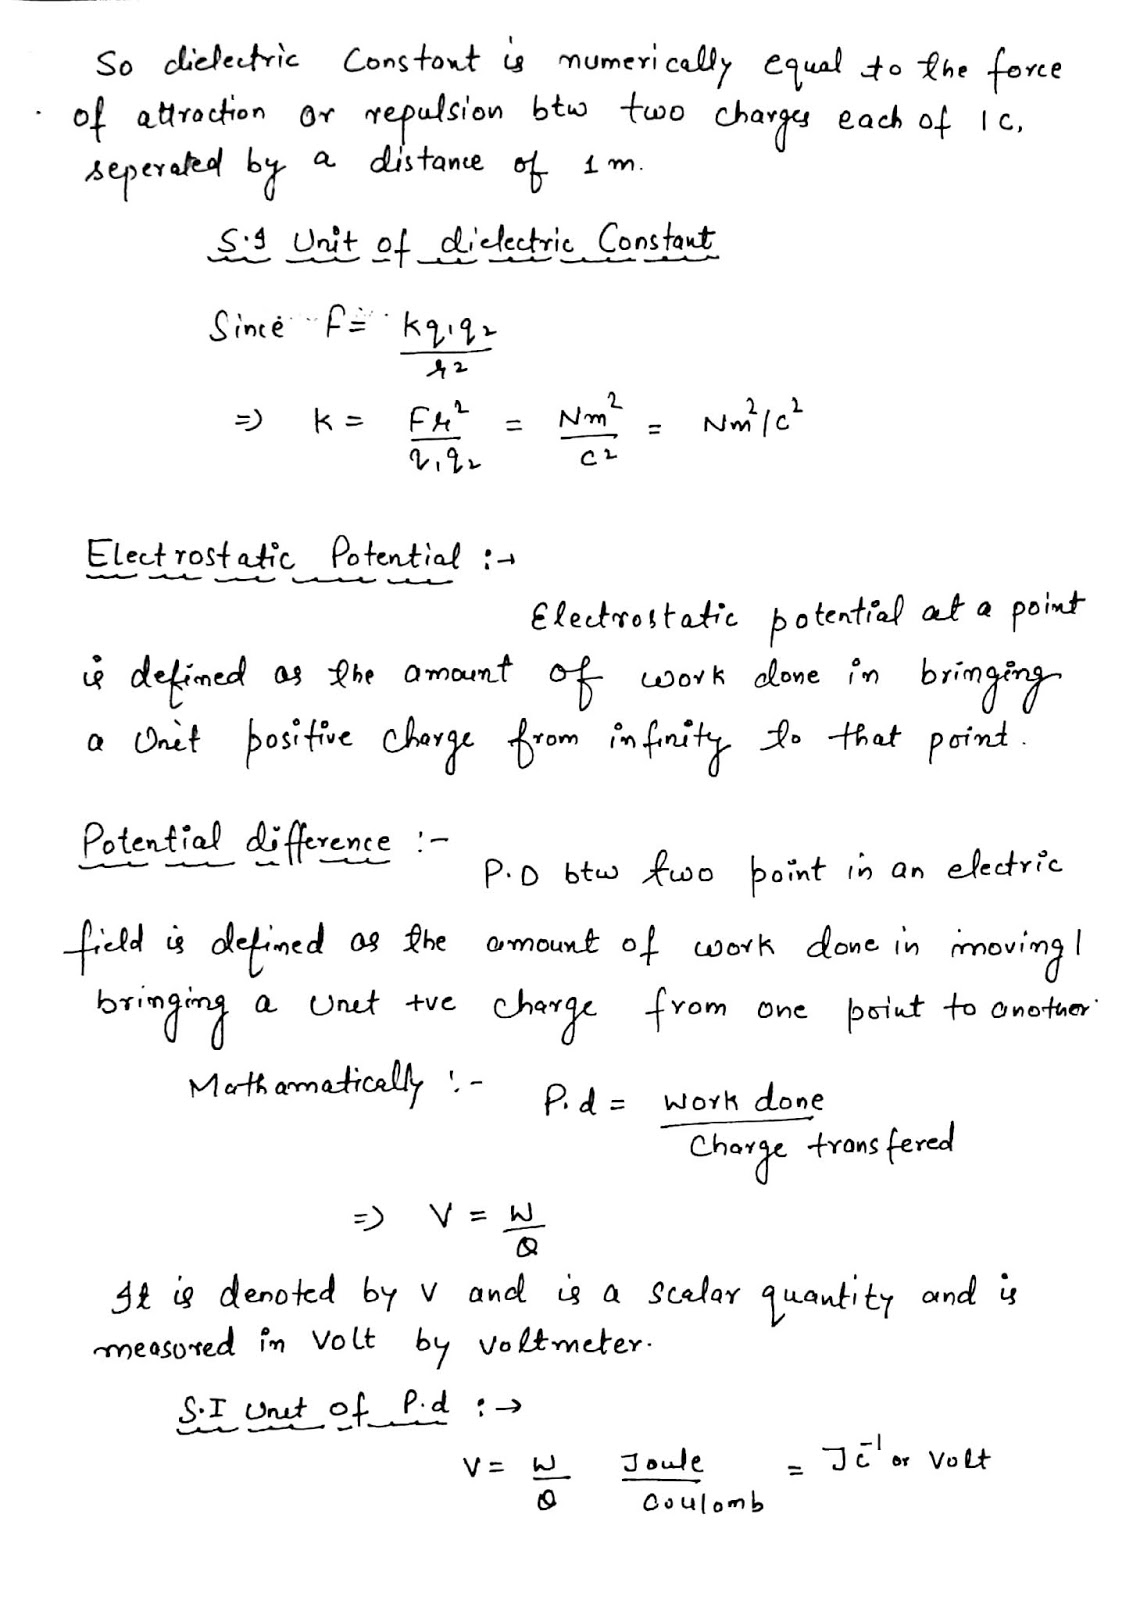 So dielectric Constant is numerically equal to the force
of attraction or repulsion btw two charges each of 1C,
seperated by a distance of 1m.
S.I Unit of dielectric Constant
Since F = kq₁q₂/r²
=> k = Fr²/q₁q₂ = Nm²/C² = Nm²/C²
Electrostatic Potential :→
Electrostatic potential at a point
is defined as the amount of work done in bringing
a Unit positive charge from infinity to that point.
Potential difference :-
P.D btw two point in an electric
field is defined as the amount of work done in moving/
bringing a Unit +ve charge from one point to another.
Mathamatically :-
P.d = Work done/Charge transfered
=> V = W/Q
It is denoted by V and is a scalar quantity and is
measured in Volt by voltmeter.
S.I Unit of P.d :→
V = W/Q Joule/Coulomb = JC⁻¹ or Volt